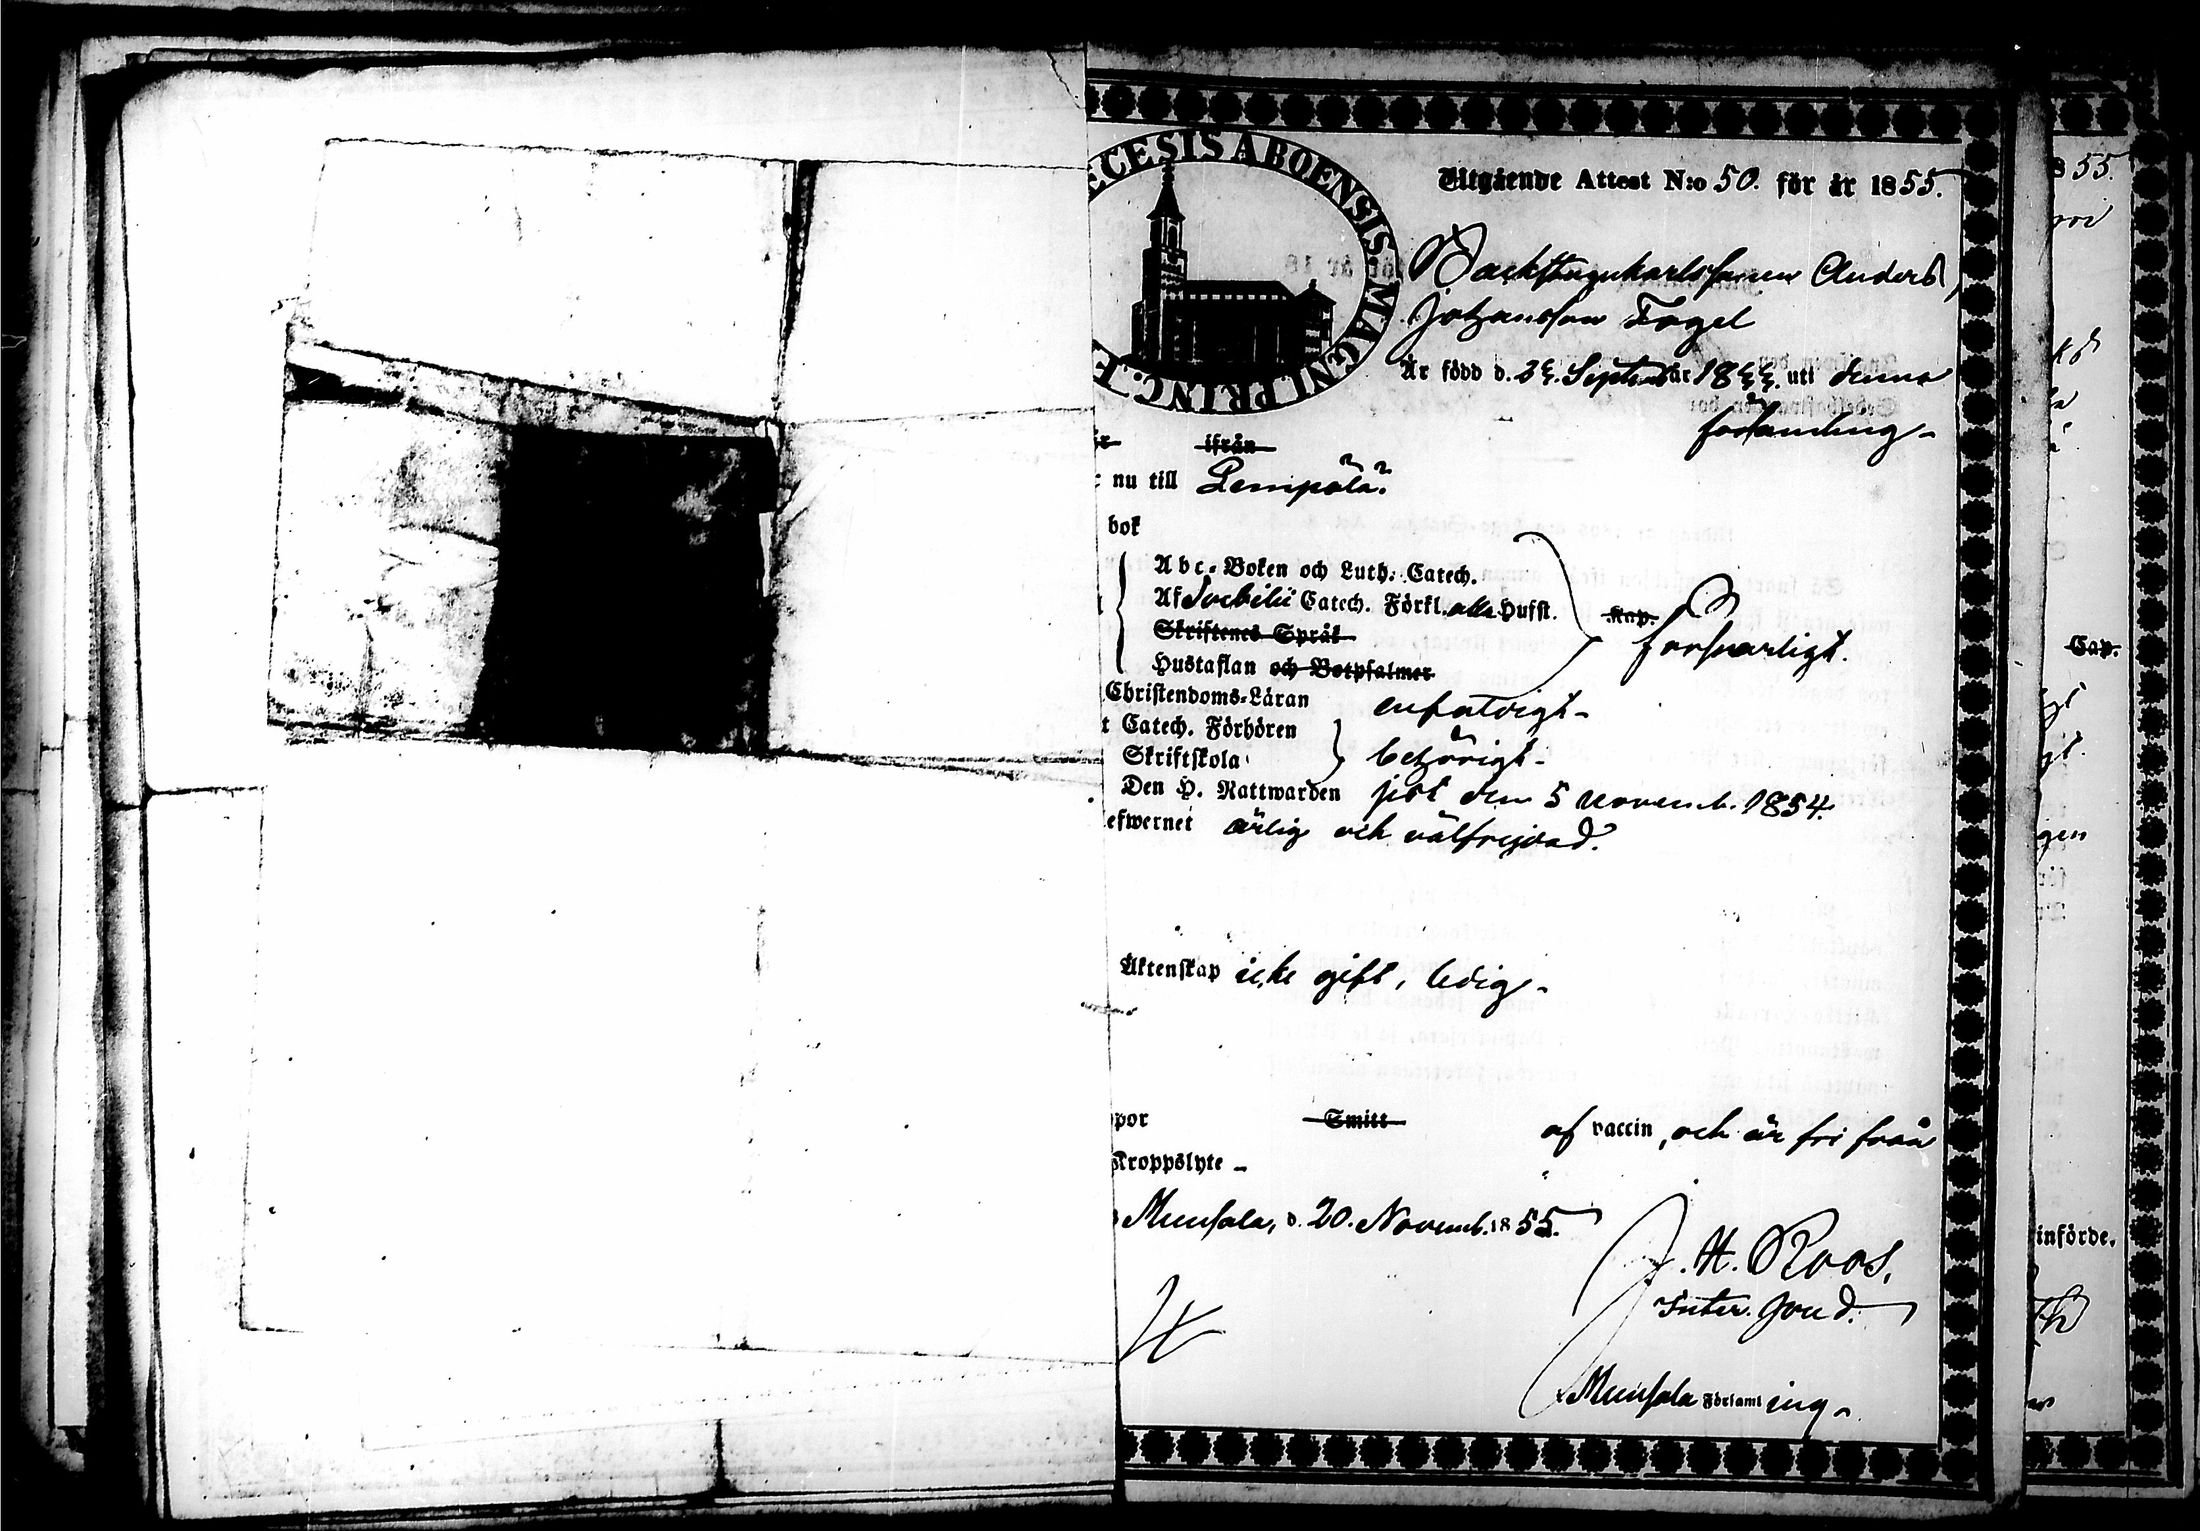 ECESIS ABOENSIS MAGNI PRINC. F
Utgående Attest N:o 50. för år 1855.
Backstugukarlssonen Anders
Johansson Fogel
Är född d. Septemb år 18 uti denna
församling-
ifrån
nu till Lempälä.
bok
Abc-Boken och Luth. Catech.
Af Svebilii Catech. Förkl. alla Hufst.
Kap. försvarligt.
Skriftenes Språk
Hustaflan och Botpsalmer
Christendoms-Läran enfaldigt-
t Catech. Förhören
Skriftskola behörigt-
Den H. Nattwarden sist den 5 Novemb. 1854.
efwernet ärlig och välfrejdad.
Äktenskap icke gift, ledig-
ppor Smitt af vaccin, och är fri från
Kroppslyte -
Munsala, d. 20. Novemb. 1855.
J. H. Roos.
Munsala Församling-
55.
Cap.
gt
gt.
gen
för
införde.